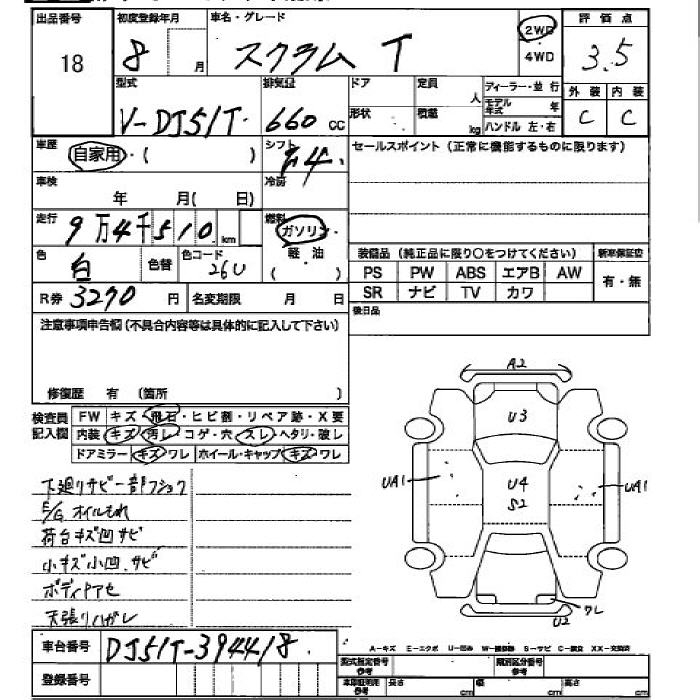 出品番号 初度登録年月 車名・グレード 2WD 評価点
18 8 月 スクラム T 4WD 3.5
型式 排気量 ドア 定員 ディーラー・並行 外装 内装
V-DJ51T 660 cc 形状 積載 人 kg モデル年式 年 C C
ハンドル 左・右
車歴 自家用・( ) シフト F4 セールスポイント (正常に機能するものに限ります)
車検 年 月( 日) 冷房
走行 9万4千510 km 燃料 ガソリン・
色 白 色替 色コード 26U 軽・油 ( )
装備品 (純正品に限り○をつけてください) 新車保証書
PS PW ABS エアB AW 有・無
SR ナビ TV カワ
R券 3270 円 名変期限 月 日 後日品
注意事項申告欄 (不具合内容等は具体的に記入して下さい)
修復歴 有 (箇所 )
検査員記入欄 FW キズ・飛石・ヒビ割・リペア跡・X要
内装 キズ・汚レ・コゲ・穴・スレ・ヘタリ・破レ
ドアミラー キズ・ワレ ホイール・キャップ キズ・ワレ
下廻りサビ一部フショク
E/Gオイルもれ
荷台キズ凹サビ
小キズ小凹、サビ
ボディアセ
天張りハガレ
A2
U3
UA1 U4 UA1
S2
ワレ
U2
車台番号 DJ51T-394418
登録番号
A-キズ E-エクボ U-凹み S-サビ C-腐食 XX-交換済
型式指定番号 参考 類別区分番号 参考
長さ cm 幅 cm 高さ cm